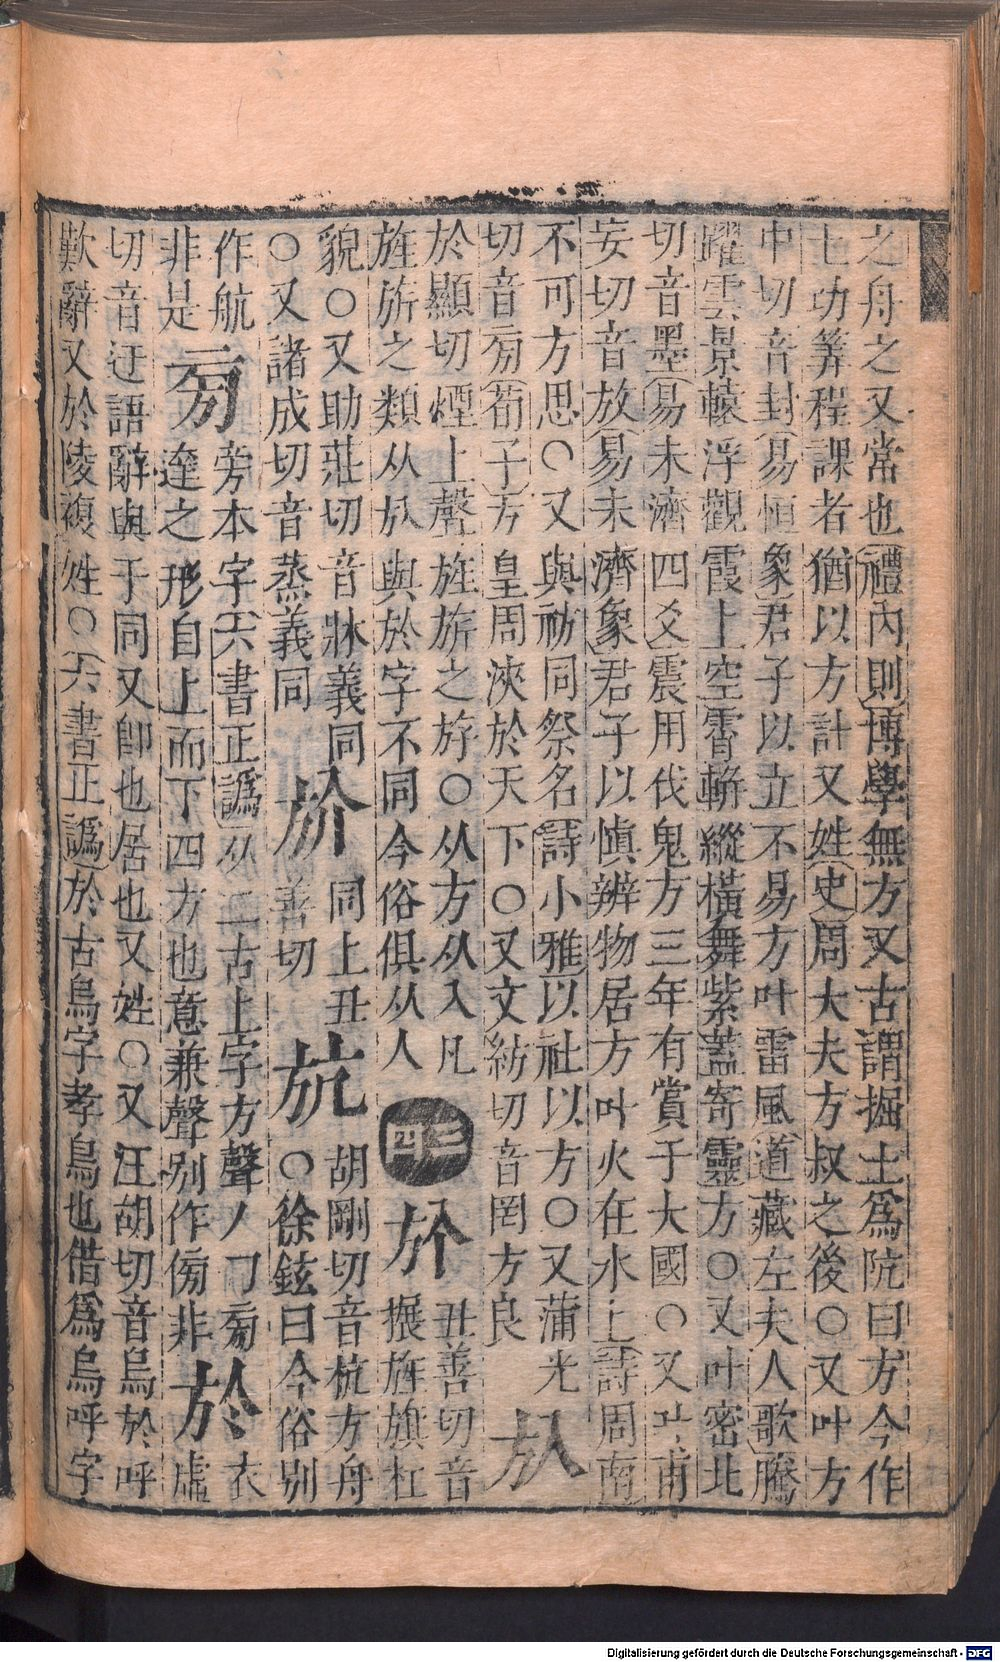 之舟之又常也禮內則博學無方又古謂掘土爲阬曰方今作
土功筭程課者猶以方計又姓史周大夫方叔之後○又叶方
中切音封易恒象君子以立不易方叶雷風道藏左夫人歌騰
躍雲景轅浮觀霞上空霄軿縱橫舞紫蓋寄靈方○又叶密北
切音墨易未濟四爻震用伐鬼方三年有賞于大國○又叶甫
妄切音放易未濟象君子以慎辨物居方叶火在水上詩周南
不可方思○又與祊同祭名詩小雅以社以方○又蒲光
切音旁荀子方皇周浹於天下○又文紡切音罔方良
㫃
於顯切煙上聲旌旂之斿○从方从入凡
旌旂之類从㫃與於字不同今俗俱从人
三四
丑善切音
搌旌旗杠
貌○又助莊切音牀義同
○又諸成切音蒸義同
同上丑
善切
胡剛切音杭方舟
○徐鉉曰今俗別
作航
非是
旁本字六書正譌从二古上字方聲
達之形自上而下四方也意兼聲別作傍非
於
衣虛
切音迂語辭與于同又卽也居也又姓○又汪胡切音烏於呼
歎辭又於陵複姓○六書正譌於古烏字孝鳥也借爲烏呼字
Digitalisierung gefördert durch die Deutsche Forschungsgemeinschaft - DFG